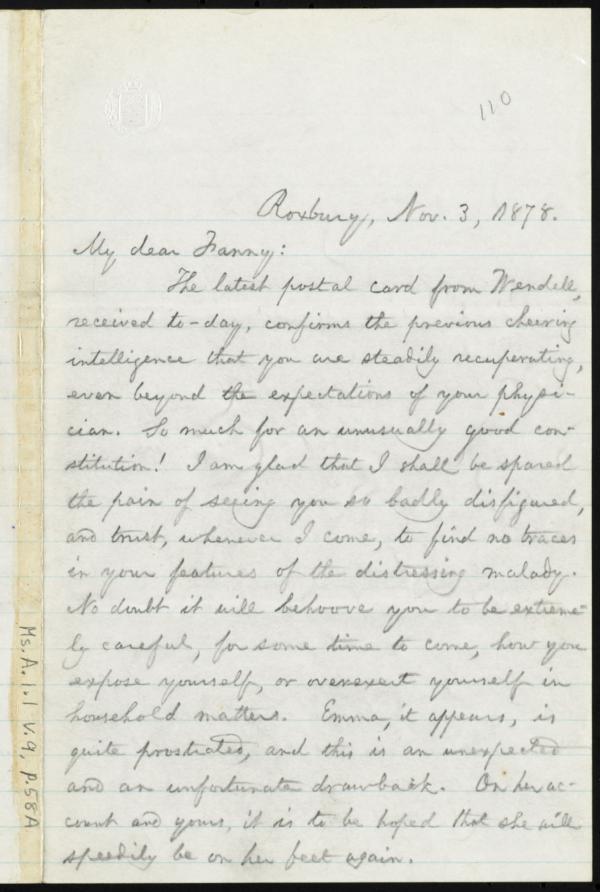 110
Roxbury, Nov. 3, 1878.
My dear Fanny:
The latest postal card from Wendell,
received to-day, confirms the previous cheering
intelligence that you are steadily recuperating,
even beyond the expectations of your physi-
cian. So much for an unusually good con-
stitution! I am glad that I shall be spared
the pain of seeing you so badly disfigured,
and trust, whenever I come, to find no traces
in your features of the distressing malady.
No doubt it will behoove you to be extreme-
ly careful, for some time to come, how you
expose yourself, or overexert yourself in
household matters. Emma, it appears, is
quite prostrated, and this is an unexpected
and an unfortunate drawback. On her ac-
count and yours, it is to be hoped that she will
speedily be on her feet again.
Ms. A. 1. 1 v. 9, p. 58A